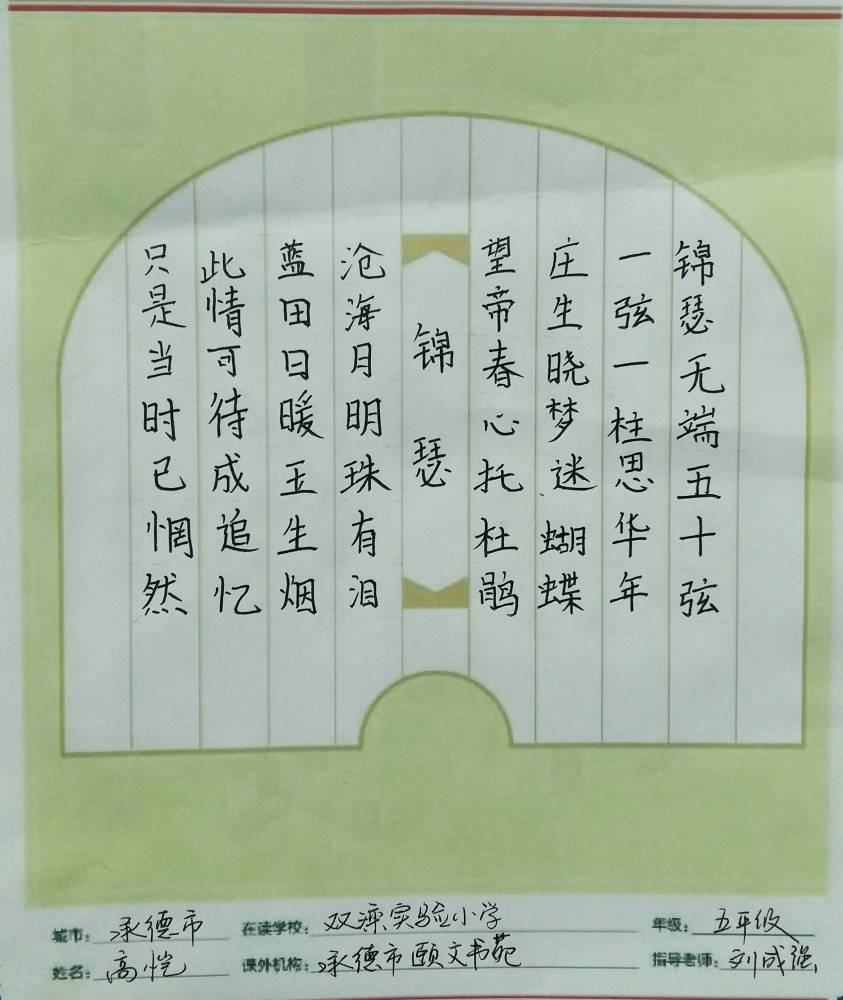 锦瑟无端五十弦
一弦一柱思华年
庄生晓梦迷蝴蝶
望帝春心托杜鹃
锦瑟
沧海月明珠有泪
蓝田日暖玉生烟
此情可待成追忆
只是当时已惘然
城市：承德市 在读学校：双滦实验小学 年级：五年级
姓名：高恺 课外机构：承德市颐文书苑 指导老师：刘成强